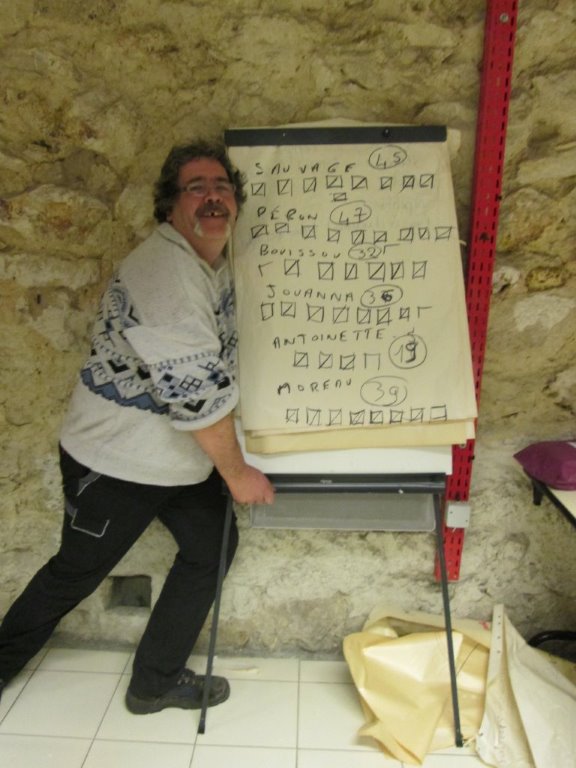 SAUVAGE 45
PÉRON 47
BOUISSOU 32
JOUANNA 36
ANTOINETTE 19
MOREAU 39